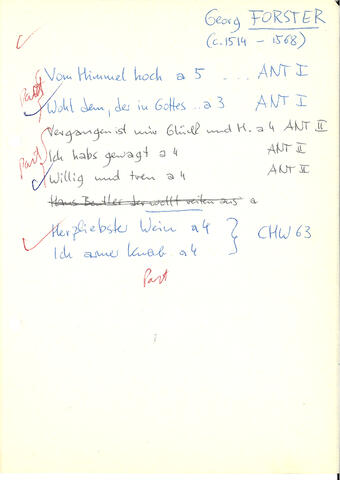 Georg FORSTER
(c.1514 – 1568)
Part Vom Himmel hoch a 5 ... ANT I
Wohl dem, der in Gottes .. a 3 ANT I
Vergangen ist mir Glück und H. a 4 ANT II
Part Ich habs gewagt a 4 ANT II
Willig und treu a 4 ANT II
Hans Beutler der wollt reiten aus a
Herzliebster Wein a 4
CHW 63
Ich armer Knab a 4
Part